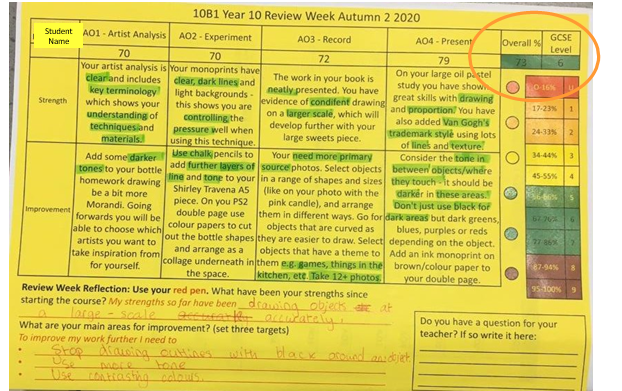 10B1 Year 10 Review Week Autumn 2 2020
Student
Name
AO1 - Artist Analysis
AO2 - Experiment
AO3 - Record
AO4 - Present
Overall %
GCSE
Level
70
70
72
79
73
6
Strength
Your artist analysis is
clear and includes
key terminology
which shows your
understanding of
techniques and
materials.
Your monoprints have
clear, dark lines and
light backgrounds -
this shows you are
controlling the
pressure well when
using this technique.
The work in your book is
neatly presented. You have
evidence of condifent drawing
on a larger scale, which will
develop further with your
large sweets piece.
On your large oil pastel
study you have shown
great skills with drawing
and proportion. You have
also added Van Gogh's
trademark style using lots
of lines and texture.
Improvement
Add some darker
tones to your bottle
homework drawing
be a bit more
Morandi. Going
forwards you will be
able to choose which
artists you want to
take inspiration from
for yourself.
Use chalk pencils to
add further layers of
line and tone to your
Shirley Travena A5
piece. On you PS2
double page use
colour papers to cut
out the bottle shapes
and arrange as a
collage underneath in
the space.
Your need more primary
source photos. Select objects
in a range of shapes and sizes
(like on your photo with the
pink candle), and arrange
them in different ways. Go for
objects that are curved as
they are easier to draw. Select
objects that have a theme to
them e.g. games, things in the
kitchen, etc Take 12+ photos
Consider the tone in
between objects/where
they touch - it should be
darker in these areas.
Don't just use black for
dark areas but dark greens,
blues, purples or reds
depending on the object.
Add an ink monoprint on
brown/colour paper to
your double page.
0-16% U
17-23% 1
24-33% 2
34-44% 3
45-55% 4
56-66% 5
67-76% 6
77-86% 7
87-94% 8
95-100% 9
Review Week Reflection: Use your red pen. What have been your strengths since
starting the course? My strengths so far have been drawing objects at
a large-scale accurately.
What are your main areas for improvement? (set three targets)
To improve my work further I need to
• Stop drawing outlines with black around an object
• Use more tone
• Use contrasting colours.
Do you have a question for your
teacher? If so write it here: